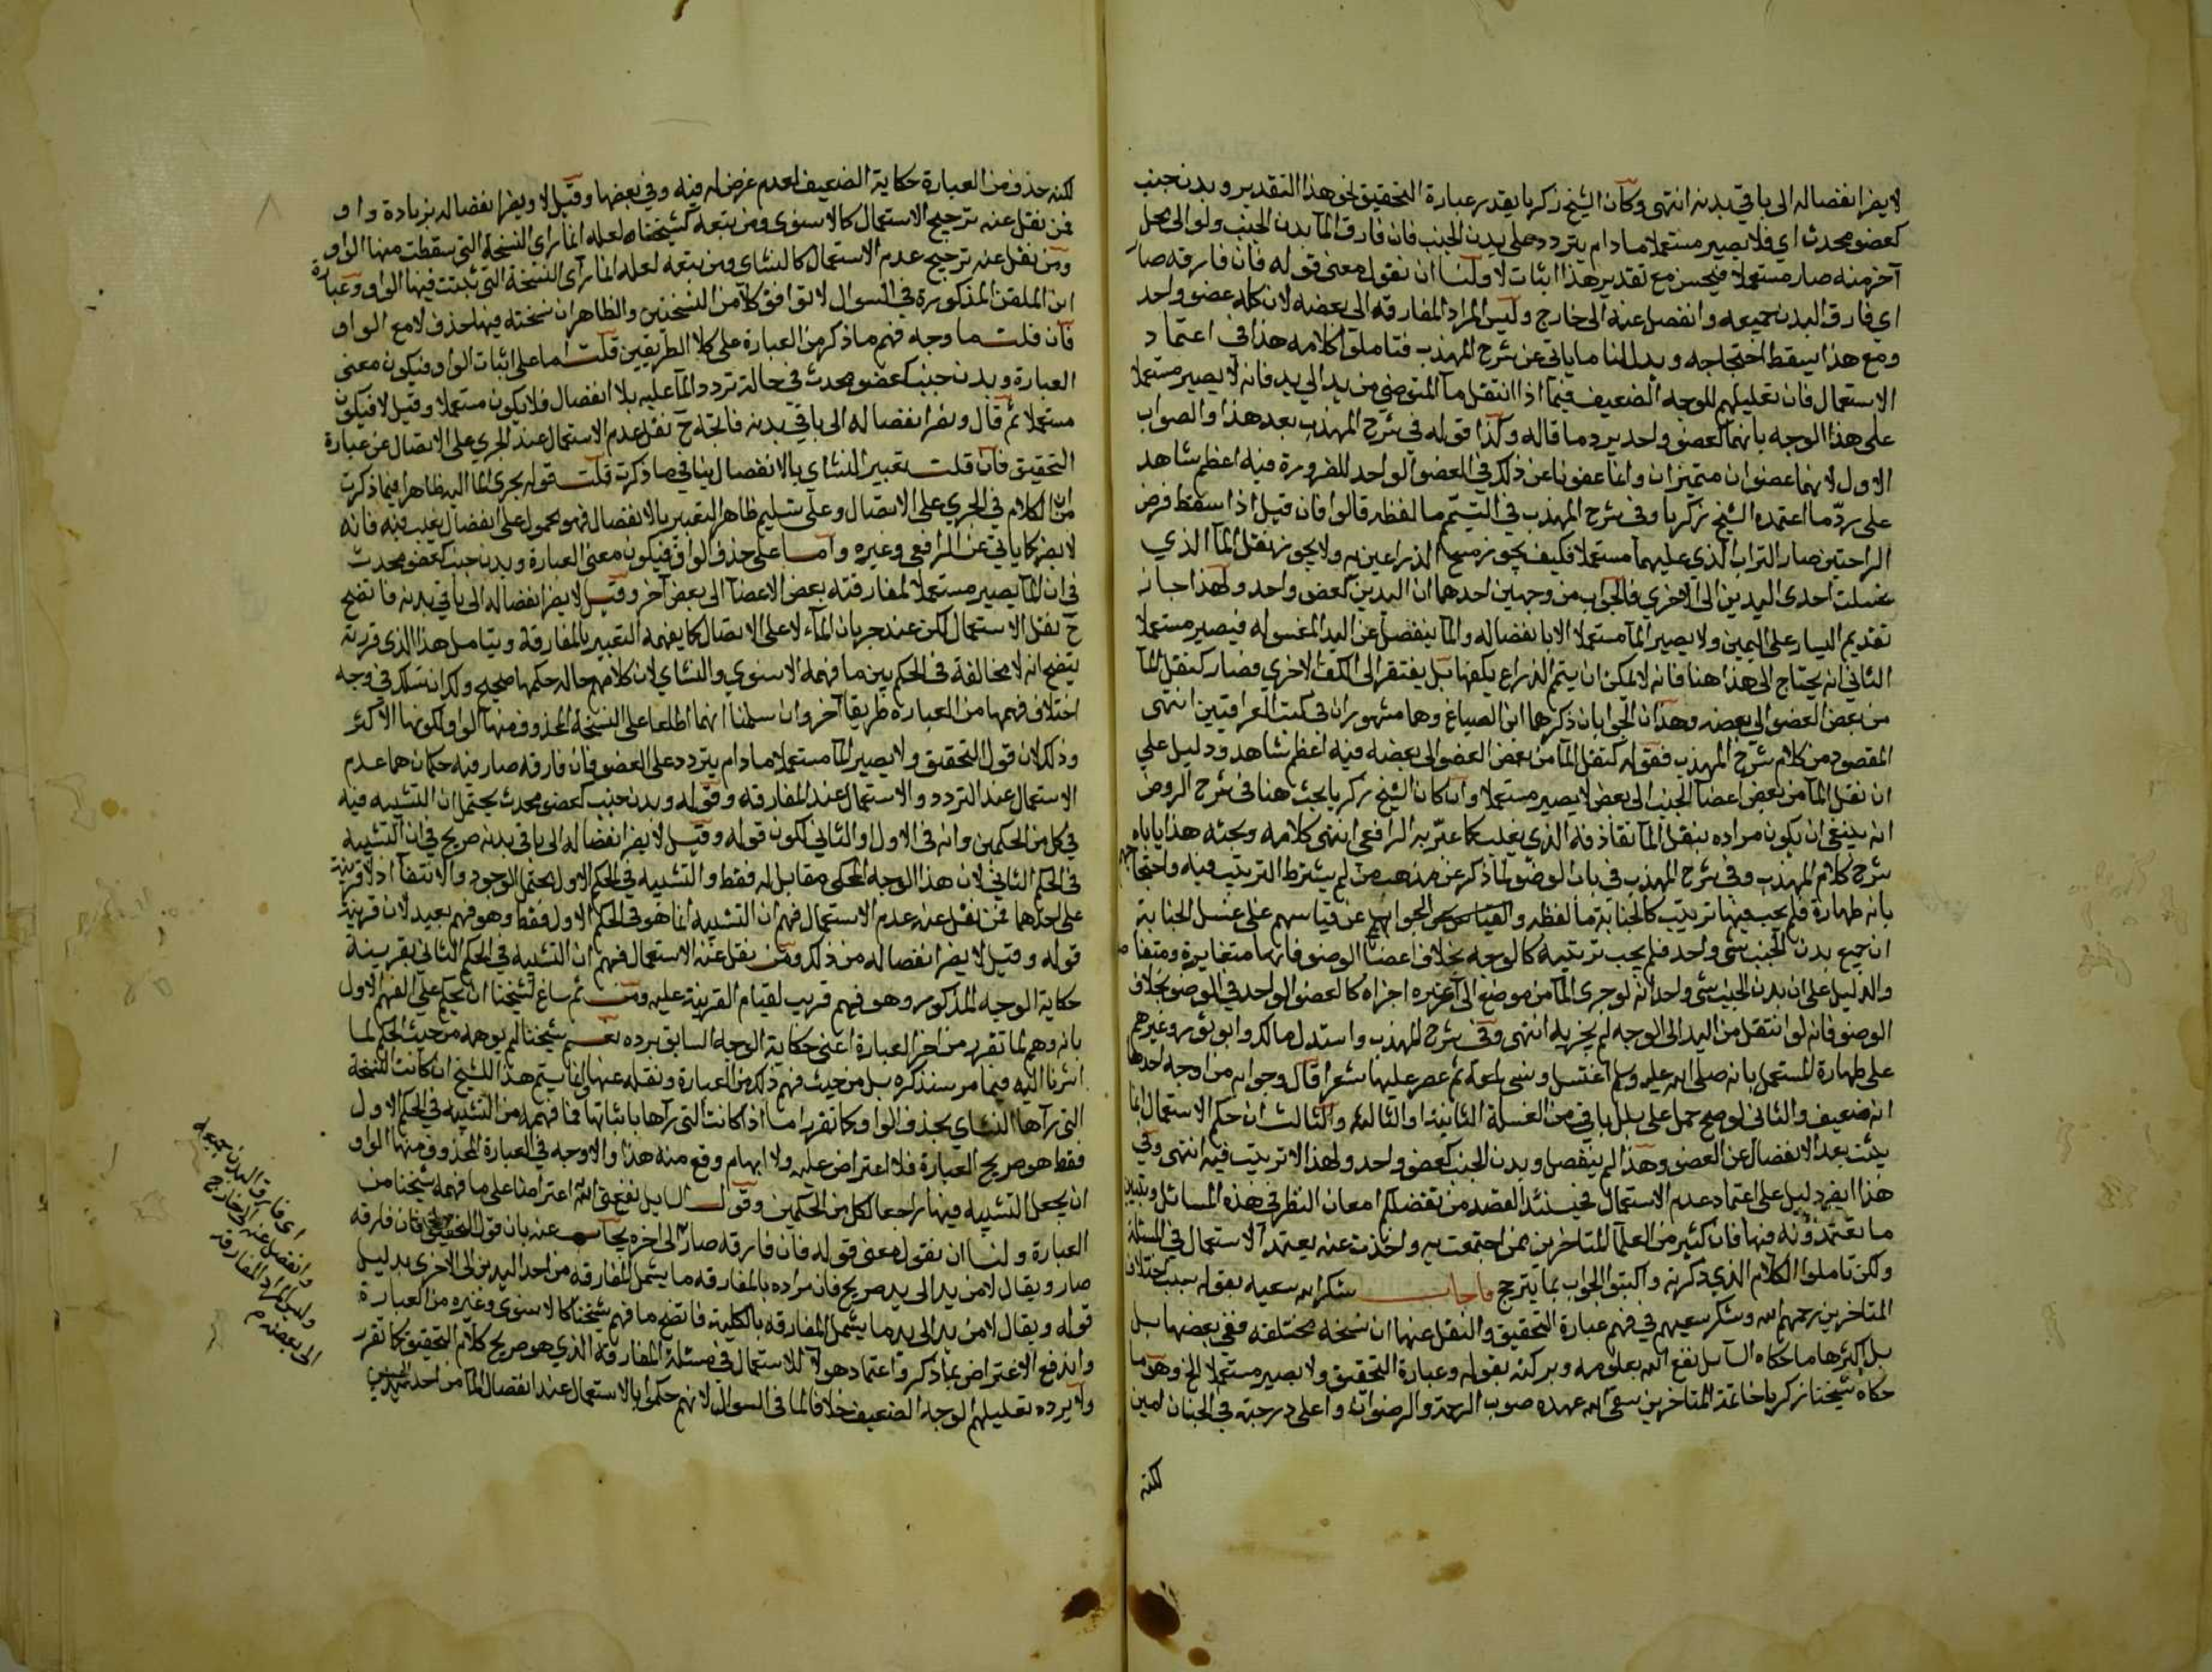 لا يضر انفصاله الى باقي بدنه انتهى وكان الشيخ زكريا يقدر عبارة التحقيق نحو هذا التقدير وبدن جنب
كعضو محدث اي فلا يصير مستعملا مادام يتردد على بدن الجنب فان فارق الما بدن الجنب ولو الى محل
آخر منه صار مستعملا فيحسن مع تقدير هذا اثبات لا ولنا ان نقول معنى قوله فان فارقه صار
اي فارق البدن جميعه وانفصل عنه الى خارج وليس المراد المفارقه الى بعضه لان كله عضو واحد
ومع هذا يسقط احتجاجه ويدل لنا ما ياتي عن شرح المهذب فتاملوا كلامه هذا في اعتماد
الاستعمال فان تعليلهم للوجه الضعيف فيما اذا انتقل ما المتوضي من يد الى يد فانه لا يصير مستعملا
على هذا الوجه بانهما كعضو واحد يرد ما قاله وكذا قوله في شرح المهذب بعد هذا والصواب
الاول لانهما عضوان متميزان وانما عفونا عن ذلك في العضو الواحد للضرورة فيه اعظم شاهد
على ردّ ما اعتمده الشيخ زكريا وفي شرح المهذب في التيمّم ما لفظه قالوا فان قيل اذا سقط فرض
الراحتين صار التراب الذي عليهما مستعملا فكيف يجوز مسح الذراعين به ولا يجوز نقل الما الذي
غسلت احدى اليدين الى الاخرى فالجواب من وجهين احدهما ان اليدين كعضو واحد ولهذا جاز
تقديم اليسار على اليمين ولا يصير الما مستعملا الا بانفصاله والما ينفصل عن اليد المغسوله فيصير مستعملا
الثاني انه يحتاج الى هذا هنا فانه لا يمكن ان يتم الذراع بكفها بل يفتقر الى الكف الاخرى فصار كنقل الما
من بعض العضو الى بعضه وهذان الجوابان ذكرهما ابن الصباغ وهما مشهوران في كتب العراقيين انتهى
المقصود من كلام شرح المهذب فقوله كنقل الما من بعض العضو الى بعضه فيه اعظم شاهد ودليل على
ان نقل الما من بعض اعضا الجنب الى بعض لا يصير مستعملا وان كان الشيخ زكريا بحث هنا في شرح الروض
انه ينبغي ان يكون مراده بنقل الما تقاذفه الذي يغلب كما عبّر به الرافعي انتهى كلامه وبحثه هذا ياباه
شرح كلام المهذب وفي شرح المهذب في باب الوضو لما ذكر عن مذهب من لم يشترط الترتيب فيه واحتجاجهم
بانه طهارة فلم يجب فيها ترتيب كالجنابة ما لفظه والجواب عن قياسهم على غسل الجنابة
ان جميع بدن الجنب شي واحد فلم يجب ترتيبه كالوجه بخلاف اعضا الوضو فانها متغايرة ومتفاصله
والدليل على ان بدن الجنب شي واحد انه لو جرى الما من موضع الى غيره اجزاه كالعضو الواحد في الوضو بخلاف
الوضو فانه لو انتقل من اليد الى الوجه لم يجزيه انتهى وفي شرح المهذب واستدل مالك وابو ثور وغيرهم
على طهارة المستعمل بانه صلى الله عليه وسلم اغتسل ونسي لمعة ثم عصر عليها شعرا قال وجوابه من اوجه احدها
انه ضعيف والثاني لو صح حمل على بلل باق من الغسلة الثانية او الثالثة والثالث ان حكم الاستعمال انما
يثبت بعد الانفصال عن العضو وهذا لم ينفصل وبدن الجنب كعضو واحد ولهذا لا ترتيب فيه انتهى وفي
هذا ايضا دليل على اعتماد عدم الاستعمال فحينئذ القصد من تفضلكم امعان النظر في هذه المسائل وتبيين
ما تعتمدونه فيها فان كثير من العلما المتاخرين ممن اجتمعت به واخذت عنه يعتمد الاستعمال في المسئلة
ولكن تاملوا الكلام الذي ذكرته واكتبوا الجواب بما يترجح فاجاب شكر الله سعيه بقوله سبب اختلاف
المتاخرين رحمهم الله وشكر سعيهم في فهم عبارة التحقيق والنقل عنها ان نسخه مختلفه ففي بعضها بل
بل اكثرها ما حكاه السايل نفع الله بعلومه وبركته بقوله وعبارة التحقيق ولا يصير مستعملا الخ وهو ما
حكاه شيخنا زكريا خاتمة المتاخرين سقى الله عهده صوب الرحمة والرضوان واعلى درجته في الجنان امين
لكنه
لكنه حذف من العبارة حكاية الضعيف لعدم غرض له فيه وفي بعضها وقيل لا ويضر انفصاله بزيادة واو
فمن نقل عنه ترجيح الاستعمال كالاسنوي ومن تبعه كشيخنا لعله انما راى النسخة التي سقطت منها الواو
ومن نقل عنه ترجيح عدم الاستعمال كالنشاي ومن تبعه لعله انما رآى النسخة التي ثبتت فيها الواو وعبارة
ابن الملقن المذكورة في السوال لا توافق كلا من النسختين والظاهر ان نسخته فيها حذف لا مع الواو
فان قلت ما وجه فهم ما ذكر من العبارة على كلا الطريقين قلت اما على اثبات الواو فيكون معنى
العبارة وبدن جنب كعضو محدث في حالة تردد الما عليه بلا انفصال فلا يكون مستعملا وقيل لا فيكون
مستعملا ثم قال ويضر انفصاله الى باقي بدنه فاتجه ح نقل عدم الاستعمال عند الجري على الاتصال عن عبارة
التحقيق فان قلت تعبير النشاي بالانفصال ينافي ما ذكرت قلت قوله يجري الما اليه ظاهر فيما ذكرت
من ان الكلام في الجري على الاتصال وعلى تسليم ظاهر التعبير بالانفصال فهو محمول على انفصال يغلب فيه فانه
لا يضر كما ياتي عن الرافعي وغيره واما على حذف الواو فيكون معنى العبارة وبدن جنب كعضو محدث
في ان الما يصير مستعملا لمفارقته بعض الاعضا الى بعض آخر وقيل لا يضر انفصاله الى باقي بدنه فاتضح
ح نقل الاستعمال لكن عند جريان الماء لا على الاتصال كما يفهمه التعبير بالمفارقة وبتامل هذا الذي قررته
يتضح انه لا مخالفة في الحكم بين ما فهمه الاسنوي والنشاي لان كلا فهم حاله حكمها صحيح ولك ان تسلك في وجه
اختلاف فهمهما من العبارة طريقا آخر وان سلمنا انهما اطلعا على النسخة المحذوف منها الواو لكونها الاكثر
وذلك لان قول التحقيق ولا يصير الما مستعملا مادام يتردد على العضو فان فارقه صار فيه حكمان هما عدم
الاستعمال عند التردد والاستعمال عند المفارقه وقوله وبدن جنب كعضو محدث يحتمل ان التشبيه فيه
في كل من الحكمين وانه في الاول او الثاني لكون قوله وقيل لا يضر انفصاله الى باقي بدنه صريح في ان التشبيه
في الحكم الثاني لان هذا الوجه المحكي مقابل له فقط والتشبيه في الحكم الاول محتمل الوجود والانتفا اذ لا قرينة
على احدهما فمن نقل عنه عدم الاستعمال فهم ان التشبيه انما هو في الحكم الاول فقط وهو فهم بعيد لان قرينة
قوله وقيل لا يضر انفصاله من ذلك ومن نقل عنه الاستعمال فهم ان التشبيه في الحكم الثاني بقرينة
حكاية الوجه المذكور وهو فهم قريب لقيام القرينة عليه ومن ثم ساغ لشيخنا ان يحكم على الفهم الاول
بانه وهم لما تقرر من اخر العبارة اعني حكاية الوجه السابق برده نعم شيخنا لم يوهمه من حيث الحكم لما
اشرنا اليه فيما مر سنذكره بل من حيث فهم ذلك من العبارة ونقله عنها وانما يتم هذا للشيخ ان كانت النسخة
التي رآها النشاي بحذف الواو كما تقرر اما اذا كانت التي رآها باثباتها فما فهمه من التشبيه في الحكم الاول
فقط هو صريح العبارة فلا اعتراض عليه ولا ابهام وقع منه هذا والاوجه في العبارة المحذوف منها الواو
ان يجعل التشبيه فيها راجعا لكل من الحكمين وقول السايل نفع الله اعتراضا على ما فهمه شيخنا من
العبارة ولنا ان نقول معنى قوله فان فارقه صار الى اخره يجاب عنه بان قول التحقيق فان فارقه
صار ويقال لا من يد الى يد صريح فان مراده بالمفارقه ما يشمل المفارقه من احد اليدين الى الاخرى بدليل
قوله ويقال لا من يد الى يد ما يشمل المفارقه بالكلية فاتضح ما فهم شيخنا كالاسنوي وغيره من العبارة
واندفع الاعتراض بما ذكر واعتماد هولا للاستعمال في مسئلة المفارقة الذي هو صريح كلام التحقيق كما تقرر
ولا يرده تعليلهم الوجه الضعيف خلافا لما في السوال لانهم حكموا بالاستعمال عند انفصال الما من احد اليدين
اي فارق البدن جميعه
وانفصل عنه الى خارج
وليس المراد المفارقه
الى بعضه م